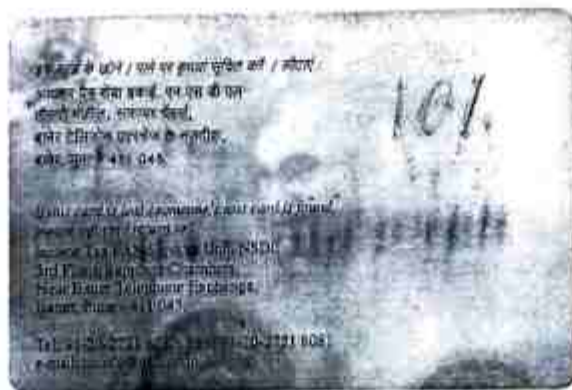 इस कार्ड के खोने / पाने पर कृपया सूचित करें / लौटाएं
आयकर पैन सेवा इकाई, एन एस डी एल
तीसरी मंजील, सफायर चेंबर्स,
बानेर टेलिफोन एक्स्चेंज के नजदीक,
बानेर, पुना - 411 045.
10%
If this card is lost / someone's lost card is found,
please inform / return to :
Income Tax PAN Services Unit, NSDL
3rd Floor, Sapphire Chambers,
Near Baner Telephone Exchange,
Baner, Pune - 411 045.
Tel: 91-20-2721
e-mail: